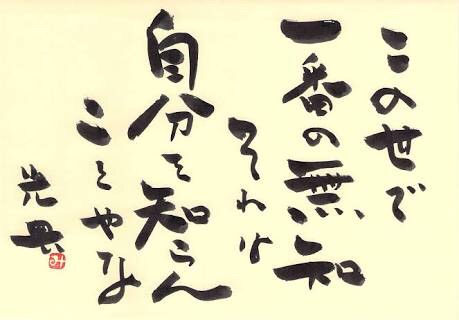 この世で
一番の無知
それは
自分を知らん
ことやな
光男
み